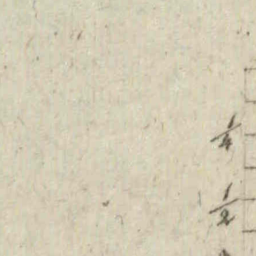 1/4
1/2